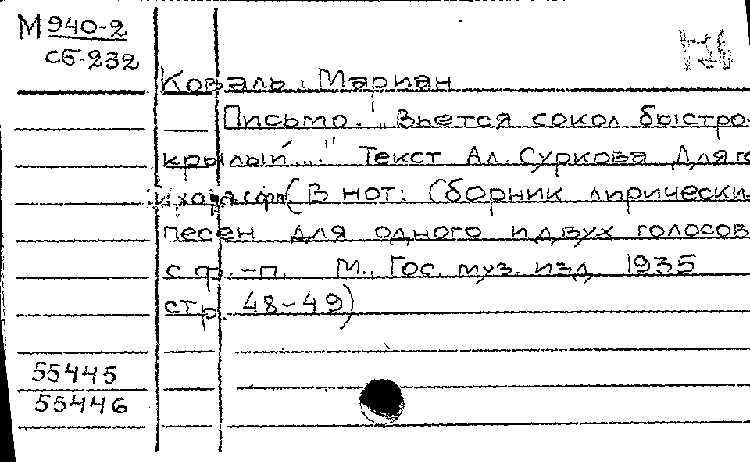 М 940-2
сб-232
Коваль, Мариан
Письмо. "Вьется сокол быстро-
крылый..." Текст Ал. Суркова Для г
и хора с фп (В нот: Сборник лирически
песен для одного и двух голосов
с ф.-п. М., Гос. муз. изд. 1935
стр. 48-49)
55445
55446